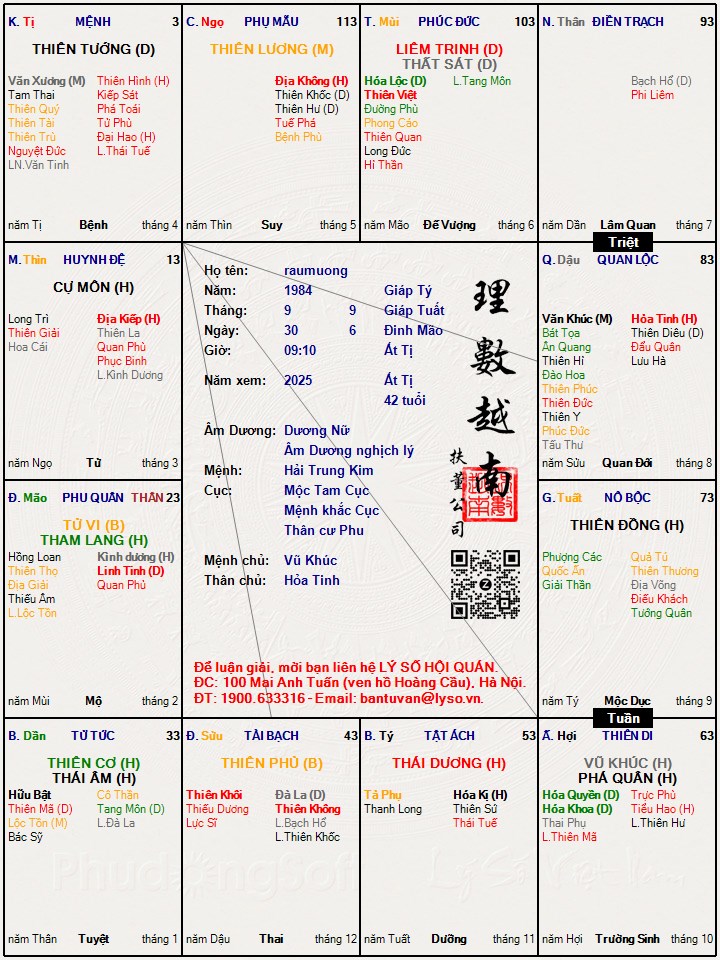 K. Tị MỆNH 3
THIÊN TƯỚNG (D)
Văn Xương (M) Thiên Hình (H)
Tam Thai Kiếp Sát
Thiên Quý Phá Toái
Thiên Tài Tử Phù
Thiên Trù Đại Hao (H)
Nguyệt Đức L.Thái Tuế
LN.Văn Tinh
năm Tị Bệnh tháng 4
C. Ngọ PHỤ MẪU 113
THIÊN LƯƠNG (M)
Địa Không (H)
Thiên Khốc (D)
Thiên Hư (D)
Tuế Phá
Bệnh Phù
năm Thìn Suy tháng 5
T. Mùi PHÚC ĐỨC 103
LIÊM TRINH (D)
THẤT SÁT (D)
Hóa Lộc (D) L.Tang Môn
Thiên Việt
Đường Phù
Phong Cáo
Thiên Quan
Long Đức
Hỉ Thần
năm Mão Đế Vượng tháng 6
N. Thân ĐIỀN TRẠCH 93
Bạch Hổ (D)
Phi Liêm
năm Dần Lâm Quan tháng 7
Triệt
M. Thìn HUYNH ĐỆ 13
CỰ MÔN (H)
Long Trì Địa Kiếp (H)
Thiên Giải Thiên La
Hoa Cái Quan Phù
Phục Binh
L.Kình Dương
năm Ngọ Tử tháng 3
Họ tên: raumuong
Năm: 1984 Giáp Tý
Tháng: 9 9 Giáp Tuất
Ngày: 30 6 Đinh Mão
Giờ: 09:10 Ất Tị
Năm xem: 2025 Ất Tị
42 tuổi
Âm Dương: Dương Nữ
Âm Dương nghịch lý
Mệnh: Hải Trung Kim
Cục: Mộc Tam Cục
Mệnh khắc Cục
Thân cư Phu
Mệnh chủ: Vũ Khúc
Thân chủ: Hỏa Tinh
理數越南
扶董公司
Để luận giải, mời bạn liên hệ LÝ SỐ HỘI QUÁN.
ĐC: 100 Mai Anh Tuấn (ven hồ Hoàng Cầu), Hà Nội.
ĐT: 1900.633316 - Email: bantuvan@lyso.vn.
Q. Dậu QUAN LỘC 83
Văn Khúc (M) Hỏa Tinh (H)
Bát Tọa Thiên Diêu (D)
Ân Quang Đẩu Quân
Thiên Hỉ Lưu Hà
Đào Hoa
Thiên Phúc
Thiên Đức
Thiên Y
Phúc Đức
Tấu Thư
năm Sửu Quan Đới tháng 8
Đ. Mão PHU QUÂN THÂN 23
TỬ VI (B)
THAM LANG (H)
Hồng Loan Kình dương (H)
Thiên Thọ Linh Tinh (D)
Địa Giải Quan Phủ
Thiếu Âm
L.Lộc Tồn
năm Mùi Mộ tháng 2
G. Tuất NÔ BỘC 73
THIÊN ĐỒNG (H)
Phượng Các Quả Tú
Quốc Ấn Thiên Thương
Giải Thần Địa Võng
Điếu Khách
Tướng Quân
năm Tý Mộc Dục tháng 9
Tuần
B. Dần TỬ TỨC 33
THIÊN CƠ (H)
THÁI ÂM (H)
Hữu Bật Cô Thần
Thiên Mã (D) Tang Môn (D)
Lộc Tồn (M) L.Đà La
Bác Sỹ
năm Thân Tuyệt tháng 1
Đ. Sửu TÀI BẠCH 43
THIÊN PHỦ (B)
Thiên Khôi Đà La (D)
Thiếu Dương Thiên Không
Lực Sĩ L.Bạch Hổ
L.Thiên Khốc
năm Dậu Thai tháng 12
B. Tý TẬT ÁCH 53
THÁI DƯƠNG (H)
Tả Phụ Hóa Kị (H)
Thanh Long Thiên Sứ
Thái Tuế
năm Tuất Dưỡng tháng 11
Ấ. Hợi THIÊN DI 63
VŨ KHÚC (H)
PHÁ QUÂN (H)
Hóa Quyền (D) Trực Phù
Hóa Khoa (D) Tiểu Hao (H)
Thai Phụ L.Thiên Hư
L.Thiên Mã
năm Hợi Trường Sinh tháng 10
Phudongsoft
Lý Số Việt Nam